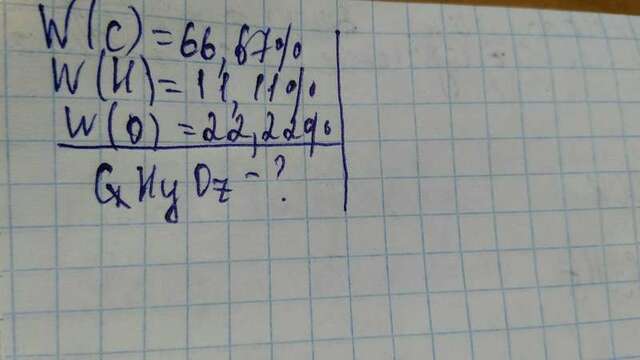 W(C)=66,67%
W(H)=11,11%
W(O)=22,22%
CxHyOz-?